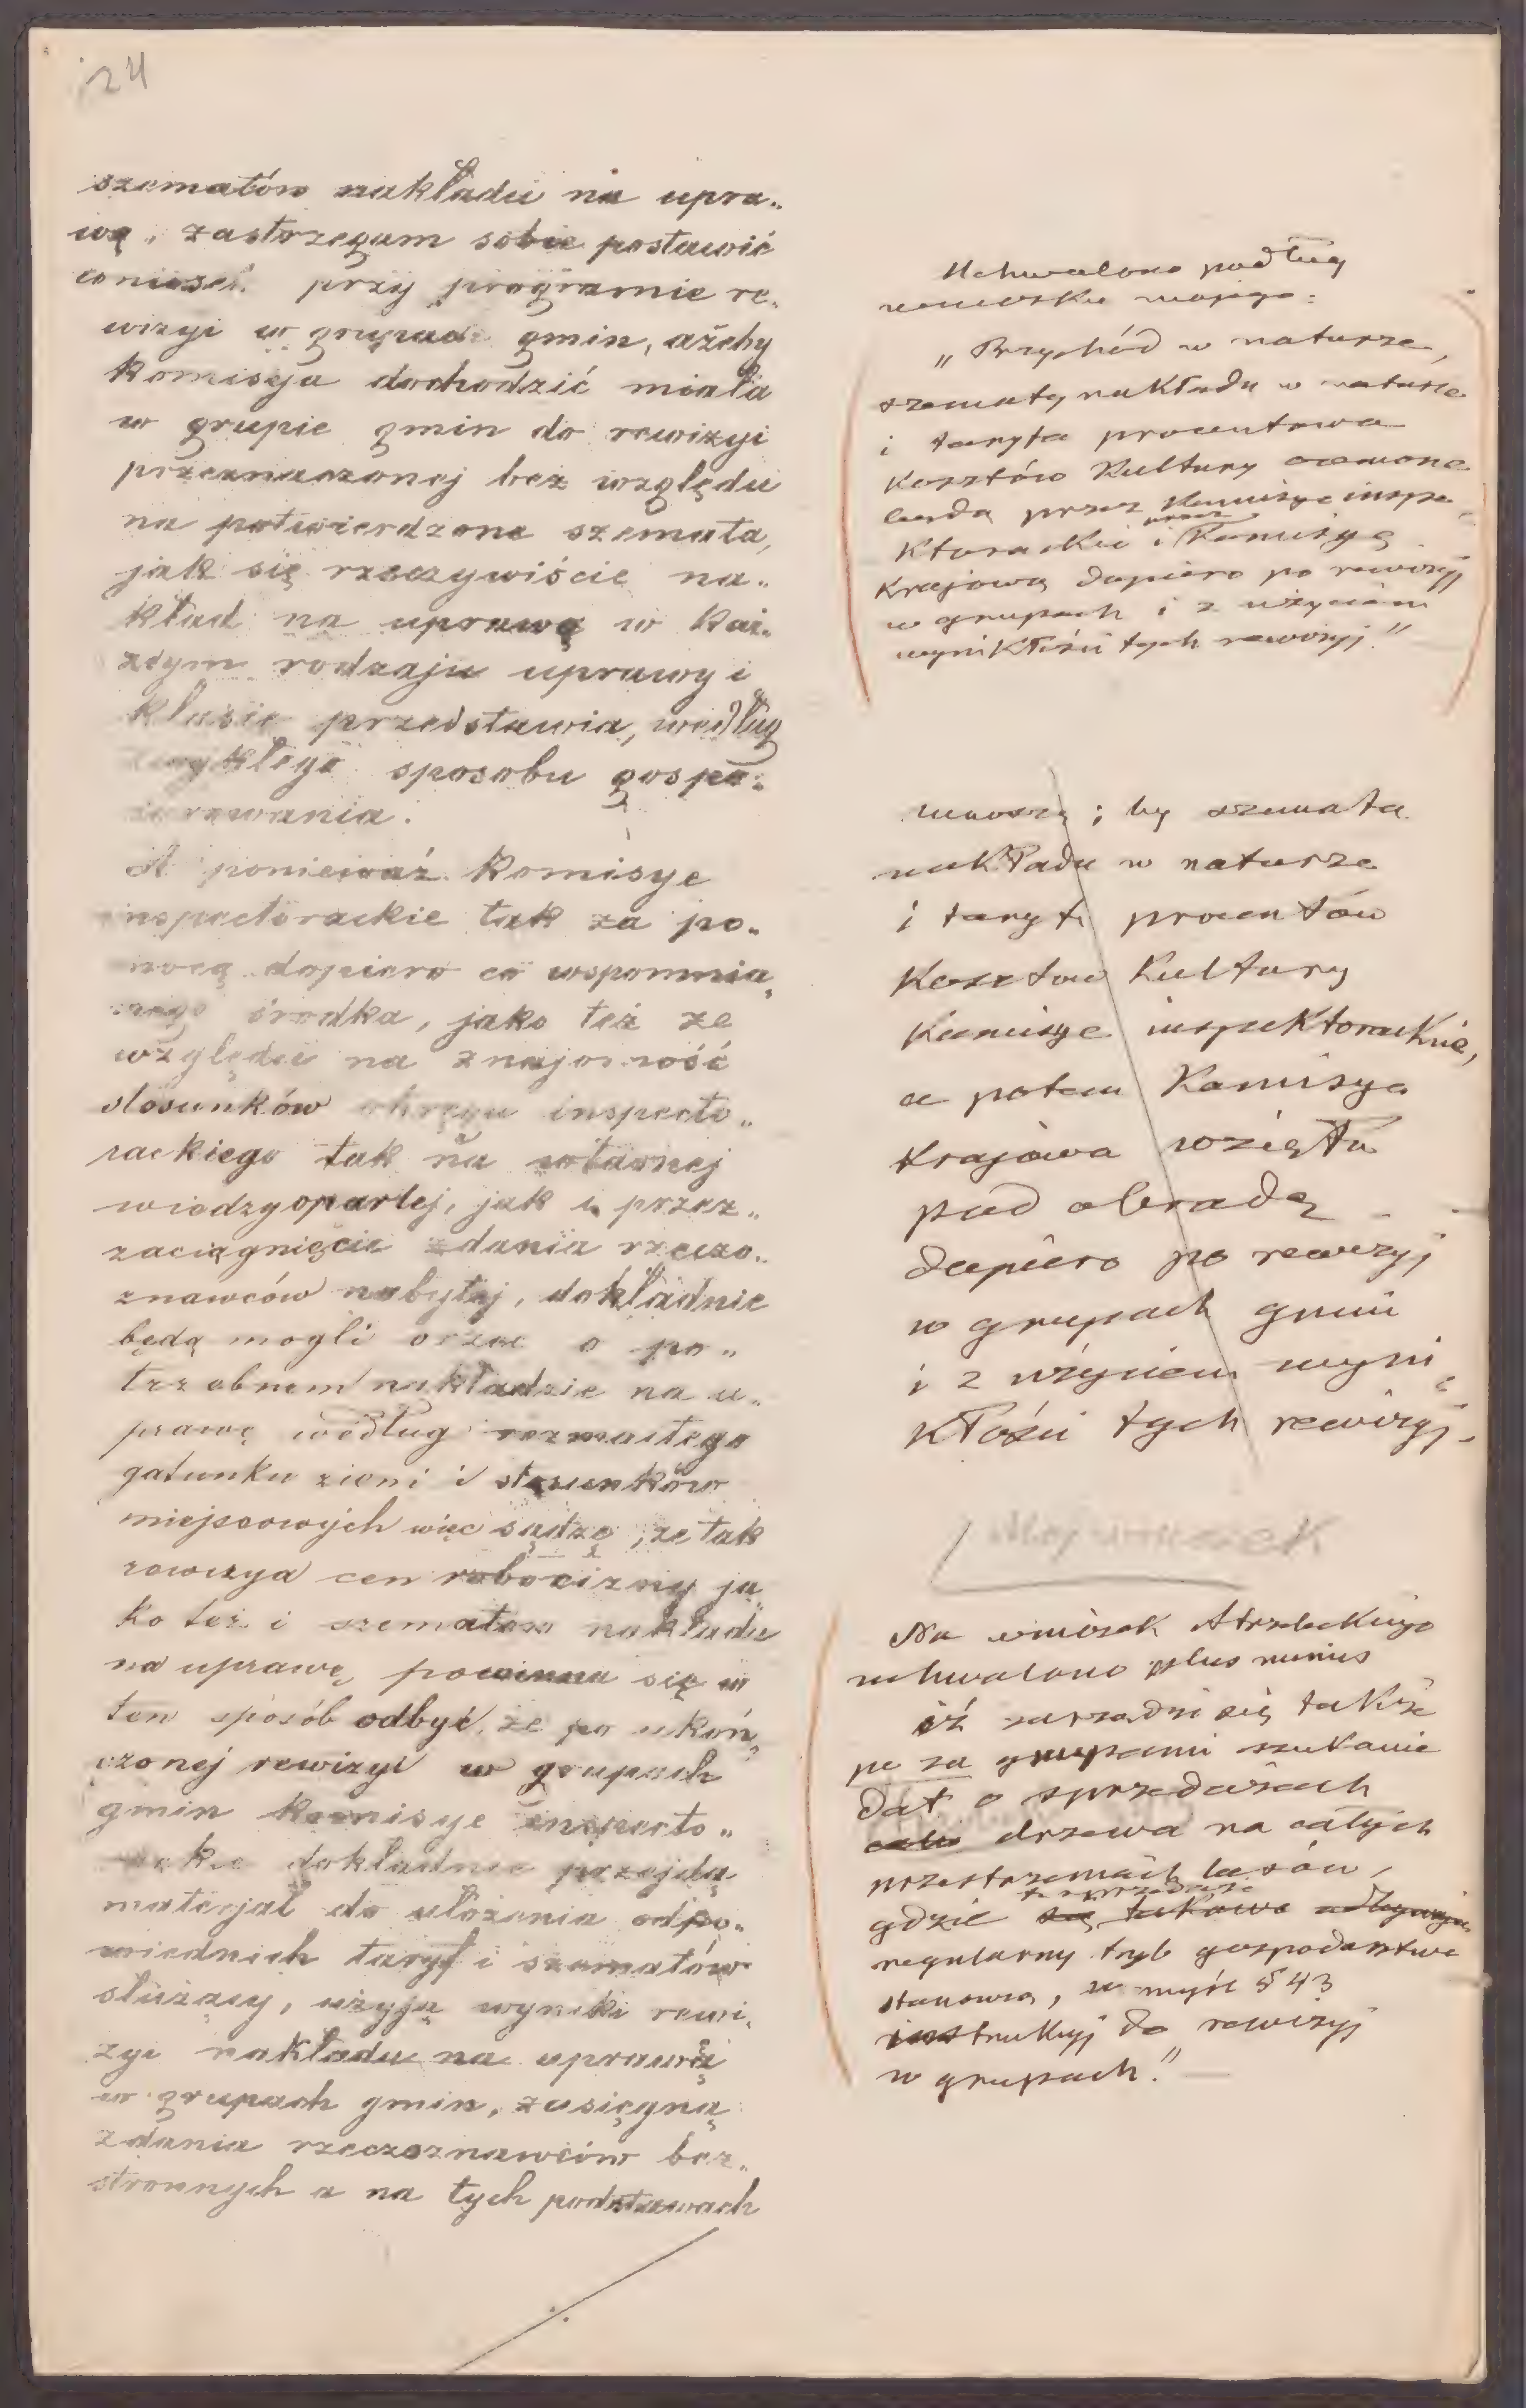 24
szematów nakładu na upra„
wę, zastrzegam sobie postawić
wniosek przy programie re„
wizyi w grupach gmin, ażeby
Komisyja dochodzić miała
w grupie gmin do rewizyi
przeznaczonej bez względu
na potwierdzone szemata,
jak się rzeczywiście na„
kład na uprawę w każ„
dym rodzaju uprawy i
klasie przedstawia, według
zwykłego sposobu gospo„
darowania.
A ponieważ Komisye
inspectorackie tak za po„
mocą dopiero co wspomnia„
nego środka, jako też ze
względu na znajomość
stosunków okręgu inspecto„
rackiego tak na własnej
wiedzy opartej, jak i przez„
zaciągnięcie zdania rzeczo„
znawców nabytej, dokładnie
będą mogli orzec o po„
trzebnem nakładzie na u„
prawę według rozmaitego
gatunku ziemi i stosunków
miejscowych więc sądzę, że tak
rewizya cen robocizny ja„
ko też i szematów nakładu
na uprawę, powinna się w
ten sposób odbyć, że po ukoń„
czonej rewizyi w grupach
gmin komisye inspecto„
rackie dokładnie przejdą
materjał do ułożenia odpo„
wiednich taryf i szematów
służący, użyją wyniki rewi„
zyi nakładu na uprawę
w grupach gmin, zasięgną
zdania rzeczoznawców bez„
stronnych a na tych podstawach
./.
Uchwalono podług
wniosku mojego:
„Przychód w naturze,
szematy nakładu w naturze
i taryfa procentowa
Kosztów Kultury ocenione
będą przez Komisye inspe„
Ktorackie i przez Komisyę
Krajową dopiero po rewizyj
w grupach i z użyciem
wynikłości tych rewizyj."
wnoszę; by szemata
nakładu w naturze
i taryfę procentów
Kosztów Kultury
Komisye inspektorackie,
a potem Komisya
Krajowa wzięła
pod obradę
dopiero po rewizyj
w grupach gmin
i z użyciem wyni„
kłości tych rewizyj.
Mój wniosek
Na wniosek Strzeleckiego
uchwalono plus minus
iż zarządzi się także
po za grupami szukanie
dat o sprzedażach
drzewa na całych
przestrzeniach lasów,
gdzie te sprzedaże
regularny tryb gospodarstwa
stanowią, w myśl § 43
instrukcyj do rewizyj
w grupach."